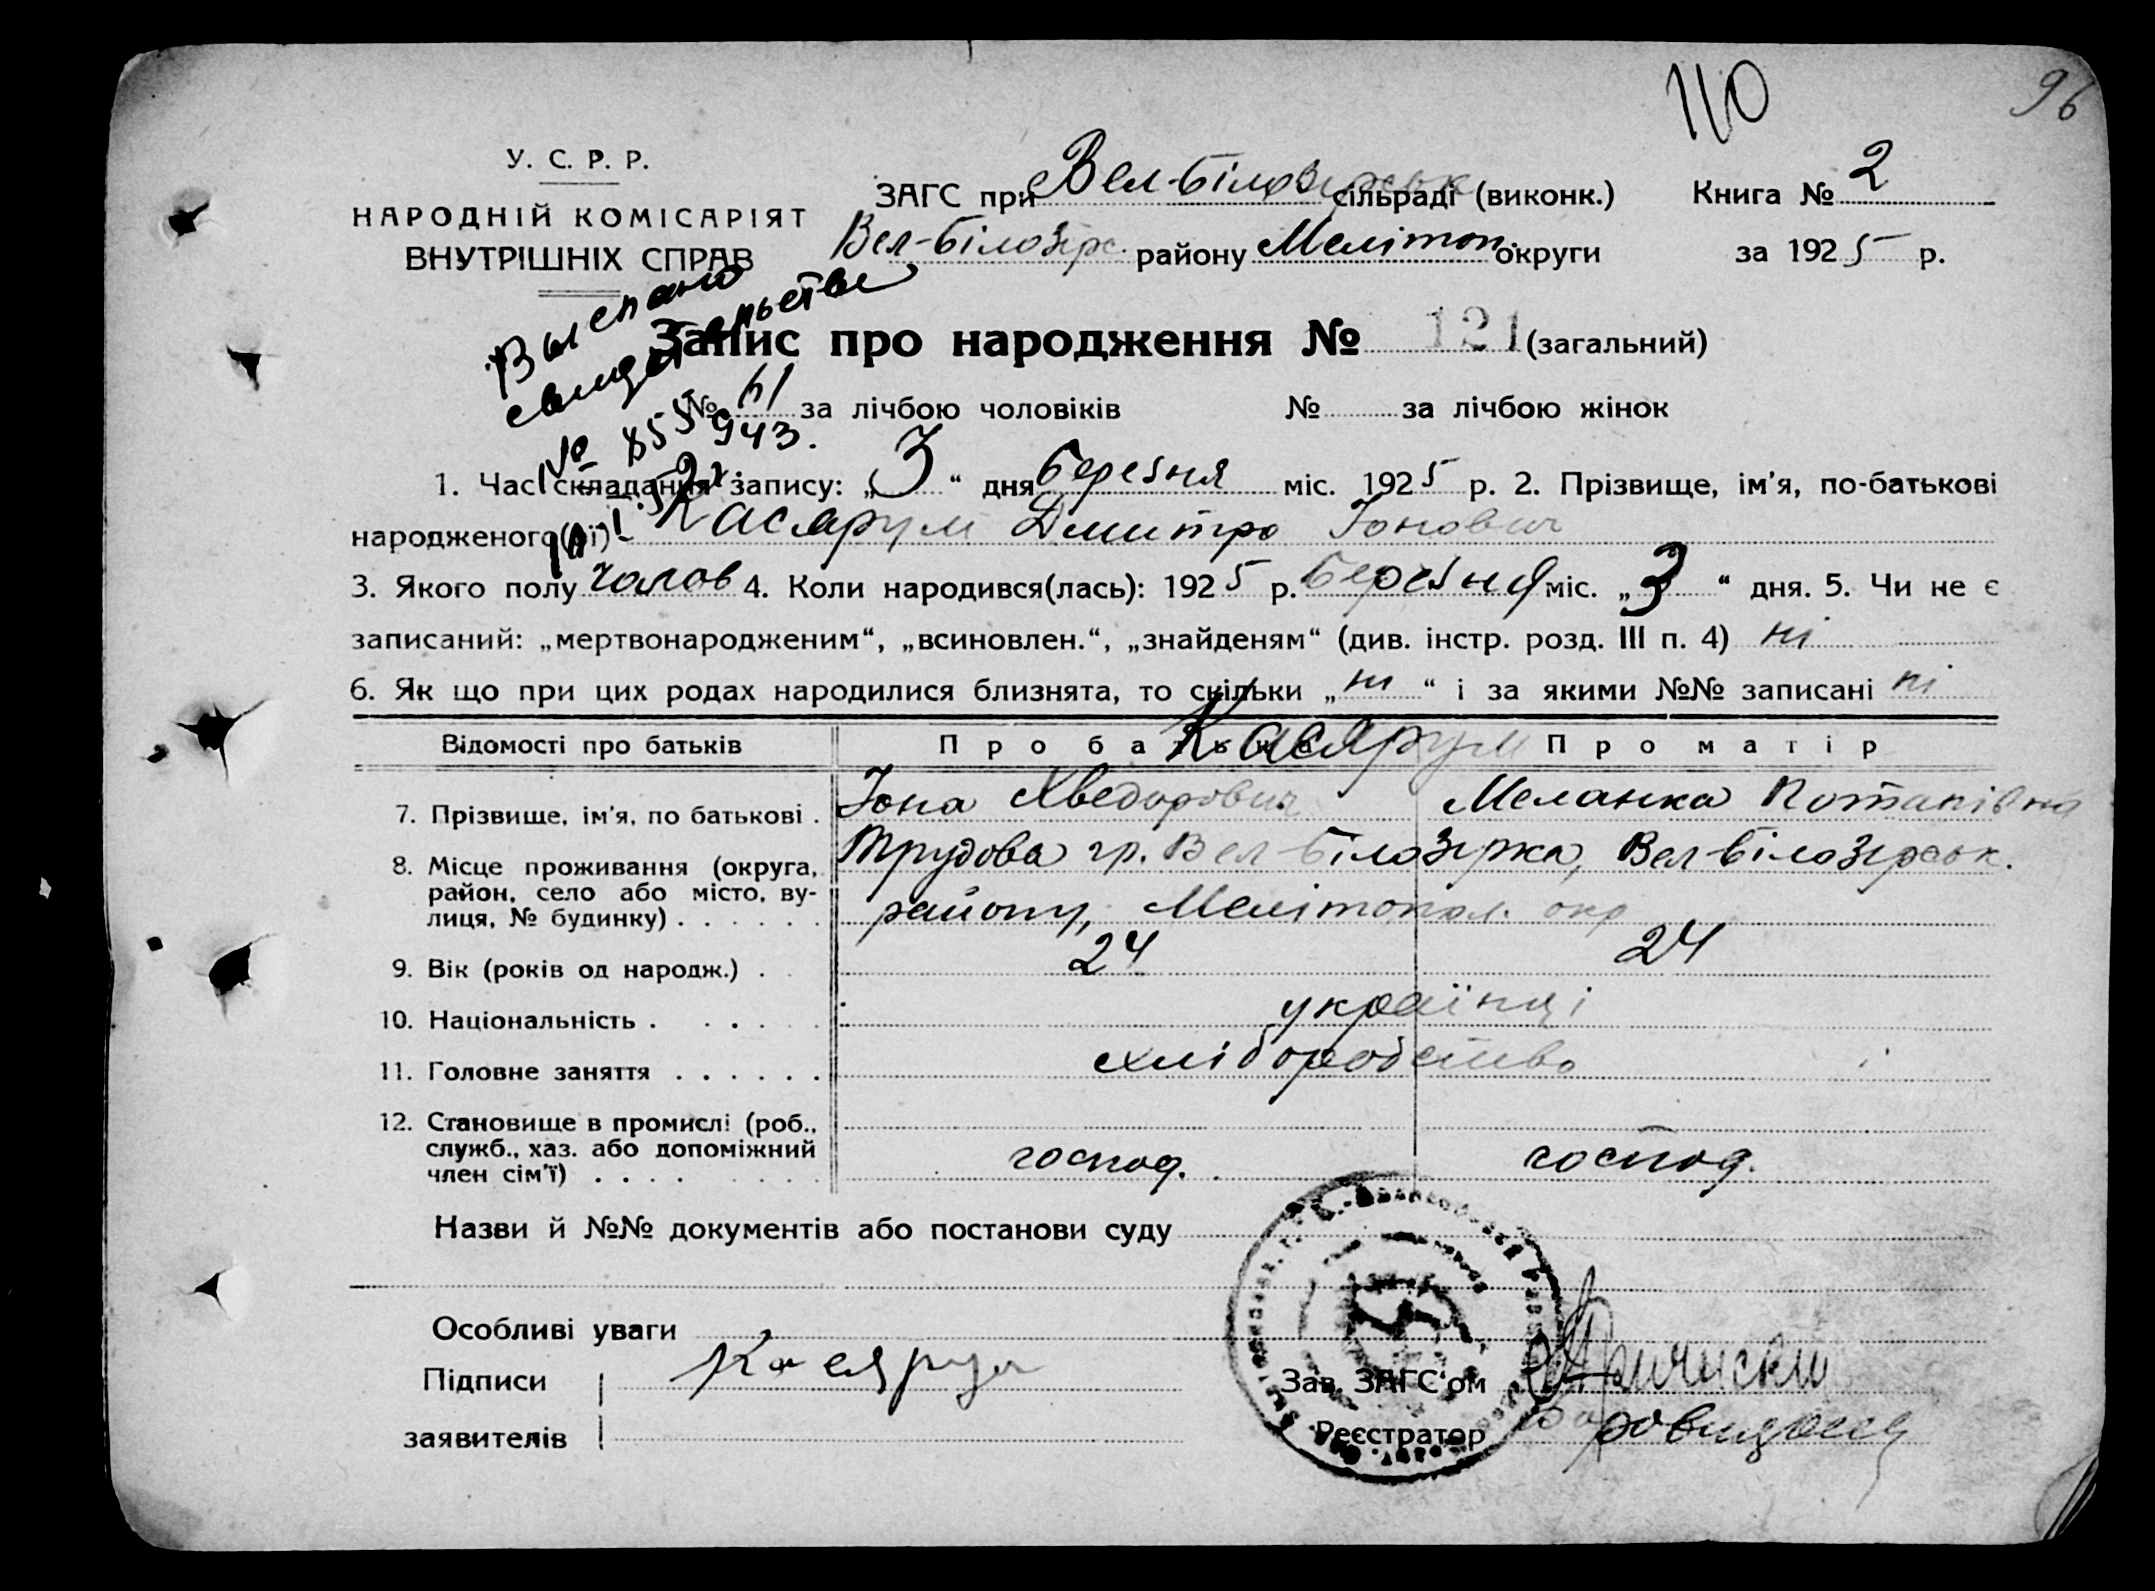 110
96
У. С. Р. Р.
НАРОДНІЙ КОМІСАРІЯТ
ВНУТРІШНІХ СПРАВ
ЗАГС при Вел-Білозірськ сільраді (виконк.) Книга № 2
Вел-Білозірс. району Мелітоп. округи за 1925 р.
Выслано
свидетельство
№ 855
943.
Запис про народження № 121 (загальний)
№ 61 за лічбою чоловіків № за лічбою жінок
1. Час складання запису: „3“ дня березня міс. 1925 р. 2. Прізвище, ім'я, по-батькові
народженого(ої) Касярум Дмитро Іонович
3. Якого полу чолов 4. Коли народився(лась): 1925 р. березня міс. „3“ дня. 5. Чи не є
записаний: „мертвонародженим“, „всиновлен.“, „знайденям“ (див. інстр. розд. III п. 4) ні
6. Як що при цих родах народилися близнята, то скільки „ні“ і за якими №№ записані ні
Відомості про батьків Про батька Про матір
Касярум
7. Прізвище, ім'я, по батькові . Іона Хведорович Меланка Потапівна
8. Місце проживання (округа, район, село або місто, вулиця, № будинку) . . . . . . Трудова гр. Вел-Білозірка, Вел-Білозірськ.
району, Мелітопол. окр
9. Вік (років од народж.) . 24 24
10. Національність . . . . . українці
11. Головне заняття . . . . . . хліборобство
12. Становище в промислі (роб., служб., хаз. або допоміжний член сім'ї) . . . . господ. господ.
Назви й №№ документів або постанови суду
Особливі уваги
Підписи Касярум
заявителів
Зав. ЗАГС'ом
Реєстратор